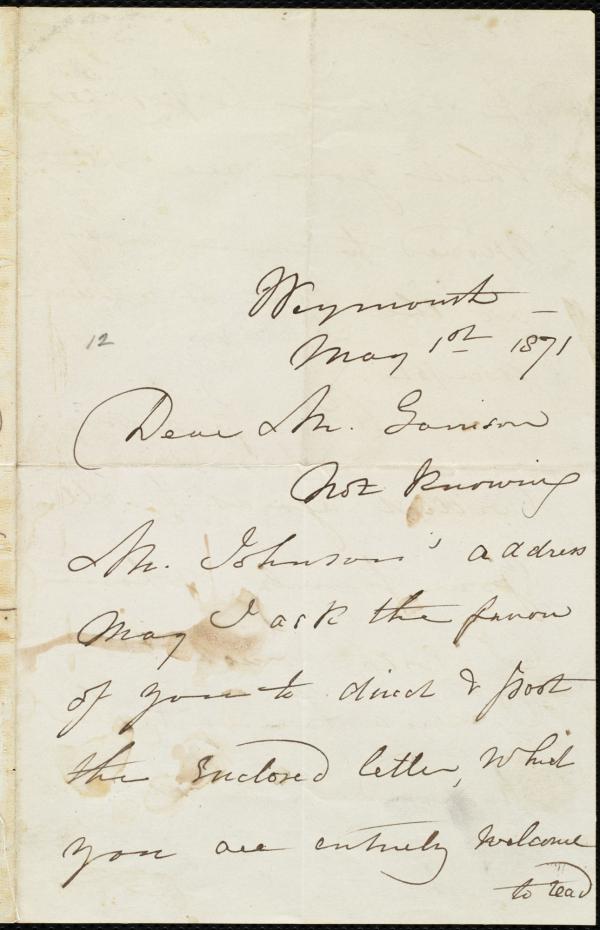 Weymouth –
May 1st 1871
12
Dear Mr. Garrison
Not knowing
Mr. Johnson's address
May I ask the favor
of you to direct & post
the enclosed letter, which
you are entirely welcome
to read